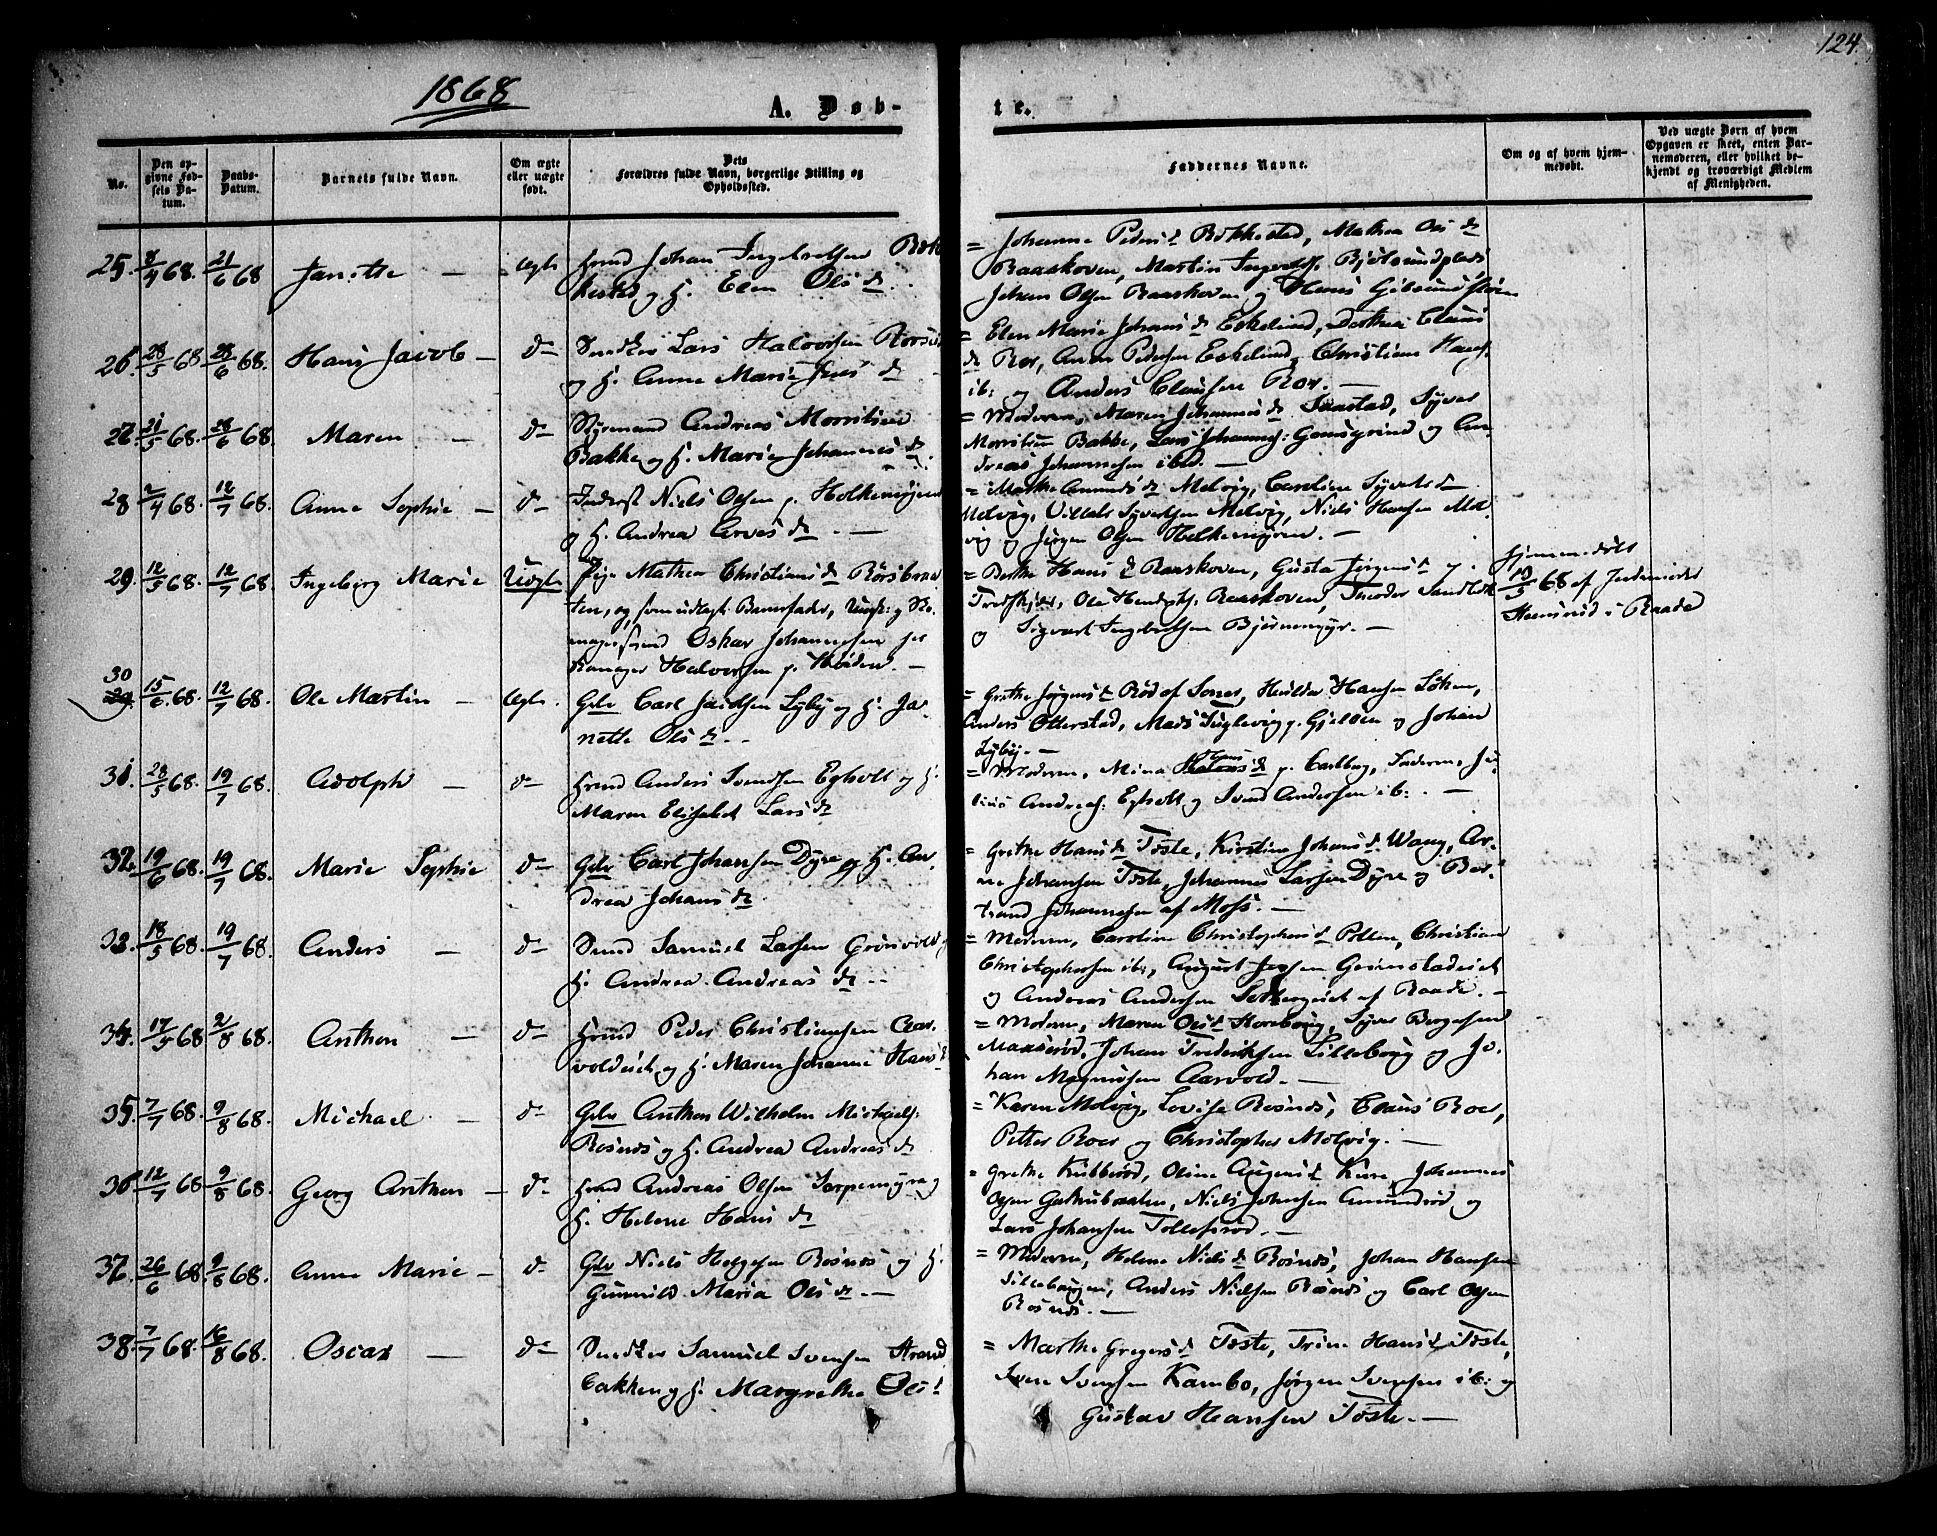 124.
1868
A. Døb-
te.
No.
Den opgivne Fødsels Datum.
Daabs-Datum.
Barnets fulde Navn.
Om ægte eller uægte født.
Dets Forældres fulde Navn, borgerlige Stilling og Opholdssted.
Faddernes Navne.
Om og af hvem hjemmedøbt.
Ved uægte Børn af hvem Opgaven er skeet, enten Barnemoderen, eller hvilket bekjendt og troværdigt Medlem af Menigheden.
25. 8/4 68. 21/6 68 Janette — Ægte
Huusmd Johan Ingebretsen
og H. Elen Olsd.
= Johanne Peders d Bøkkestad, Mathea Ols d
Raaskoven, Martin
Johan Olsen Raaskoven og Hans
26. 28/5 68. 28/6 68. Hans Jacob — do
Snedker Lars Halvorsen
og H. Anne Marie Jens d
= Elen Marie Johans d Eskelund, Dorthea Claus
d Roer, Anne Pedersen Eskelund, Christian Hans.
ib: og Anders Clausen Roer. —
27. 21/5 68. 28/6 68. Maren — do
Styrmand Andreas
Bakke og H. Marie Johannes d.
= Moderen, Maren Johannes d Syver
Bakke, Lars Johannes: og An-
dreas Johannesen ibd. —
28 2/4 68. 12/7 68. Anne Sophie — do
Inderst Niels Olsen p. Holkemyren
og H. Andrea Arves d. —
= Marthe Amunds d Melvig, Caroline Syverts d
Melvig, Syvertsen Melvig, Niels Hansen Mel-
vig og Jørgen Olsen Holkemyren. —
29. 12/5 68. 12/7 68. Ingeborg Marie Uægte
Pige Mathea Christians d Rørsbraa-
ten, og som udlagt Barnefader, Ungk: og
Oskar Johannesen
Halvorsen p. —
= Berthe Hans d Raaskoven, Gusta Jørgens d og
Ole Raaskoven, Theodor
og Sigvart Ingebretsen Bjørnemyr. —
Hjemmedøbt
10/5 68 af Jordemoder
i Raade
30
29. 15/6 68. 12/7 68. Ole Martin — Ægte.
Gdr Carl Lyby og H. Ja-
nette Ols d. —
= Grethe Jørgens d Rød af Hansen
Anders Otterstad, Mads p. Gjelsen og Johan
Lyby. —
31. 28/5 68. 19/7 68. Adolph — do
Huusmd Anders Svendsen Egholt og H.
Maren Elisabet Lars d
= Moderen, Mina Hans d p. Carlberg, Faderen, Ju-
lius Andreas: Egholt og Svend Andersen ib: . —
32. 19/6 68. 19/7 68. Marie Sophie do
Gdr Carl Johansen Dyre og H. An-
drea Johans d.
= Grethe Hans d Toste, Kirstine Johans d Wang, Ar-
ne Johansen Toste, Johannes Larsen Dyre og Ber-
trand Johannesen af Moss. —
33. 18/5 68. 19/7 68. Anders — do
Samuel Larsen Grønvold
H. Andrea Andreas d. —
= Moderen, Caroline Christophers d Pollen, Christian
Christophersen ib:, August Jensen Grimstadeiet
og Andreas Andersen af Raade. —
34. 17/5 68 2/8 68. Anthon — do
Huusmd Peder Christiansen Aar-
voldeiet og H. Maren Johanne Hans d
= Moderen, Maren Ols d Syver Borgersen
Johan Fredriksen Lilleborg og Jo-
han Magnusen Aarvold. —
35. 7/7 68. 9/8 68. Michael — do
Gdr Anthon Wilhelm Michaels:
Rosnæs og H. Andrea Andreas d
= Karen Molvig, Lovise Rosnæs, Claus Roer,
Petter Roer og Christopher Molvig. —
36 12/7 68 9/8 68. Georg Anthon — do
Huusmd Andreas Olsen Torpemyra og
H. Helene Hans d
= Grethe Kubberød, Oline Augens d Kure, Johannes
Olsen Niels Johnsen Amundrød og
Lars Johansen Tollefsrød. —
37. 26/6 68 9/8 68. Anne Marie — do
Gdr Niels Helgesen Rosnæs og H.
Gunnild Maria Ols d. —
= Moderen, Helene Niels d Rosnæs, Johan Hansen
Anders Nielsen Rosnæs og Carl Olsen
Rosnæs. —
38. 7/7 68. 16/8 68. Oscar — do
Snedker Samuel Svensen Strand-
bakken og H. Margrethe Ols d
= Marthe Gregers d Toste, Trine Hans d Toste,
Svensen Kambo, Jørgen Svensen ib: og
Gustav Hansen Toste. —